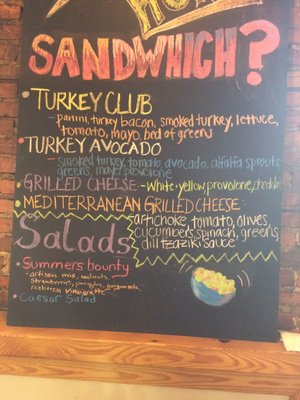 SANDWHICH?
TURKEY CLUB
- panini, turkey bacon, smoked turkey, lettuce,
tomato, mayo, bed of greens
TURKEY AVOCADO
- smoked turkey, tomato, avocado, alfalfa sprouts,
greens, mayo, provolone
GRILLED CHEESE: - White + yellow provolone,
MEDITERRANEAN GRILLED CHEESE:
artichoke, tomato, olives,
cucumbers, spinach, greens
dill tzaziki sauce
Salads
Summers bounty
- artisan mix, walnuts,
strawberries, gorgonzola
vinaigrette
Caesar Salad